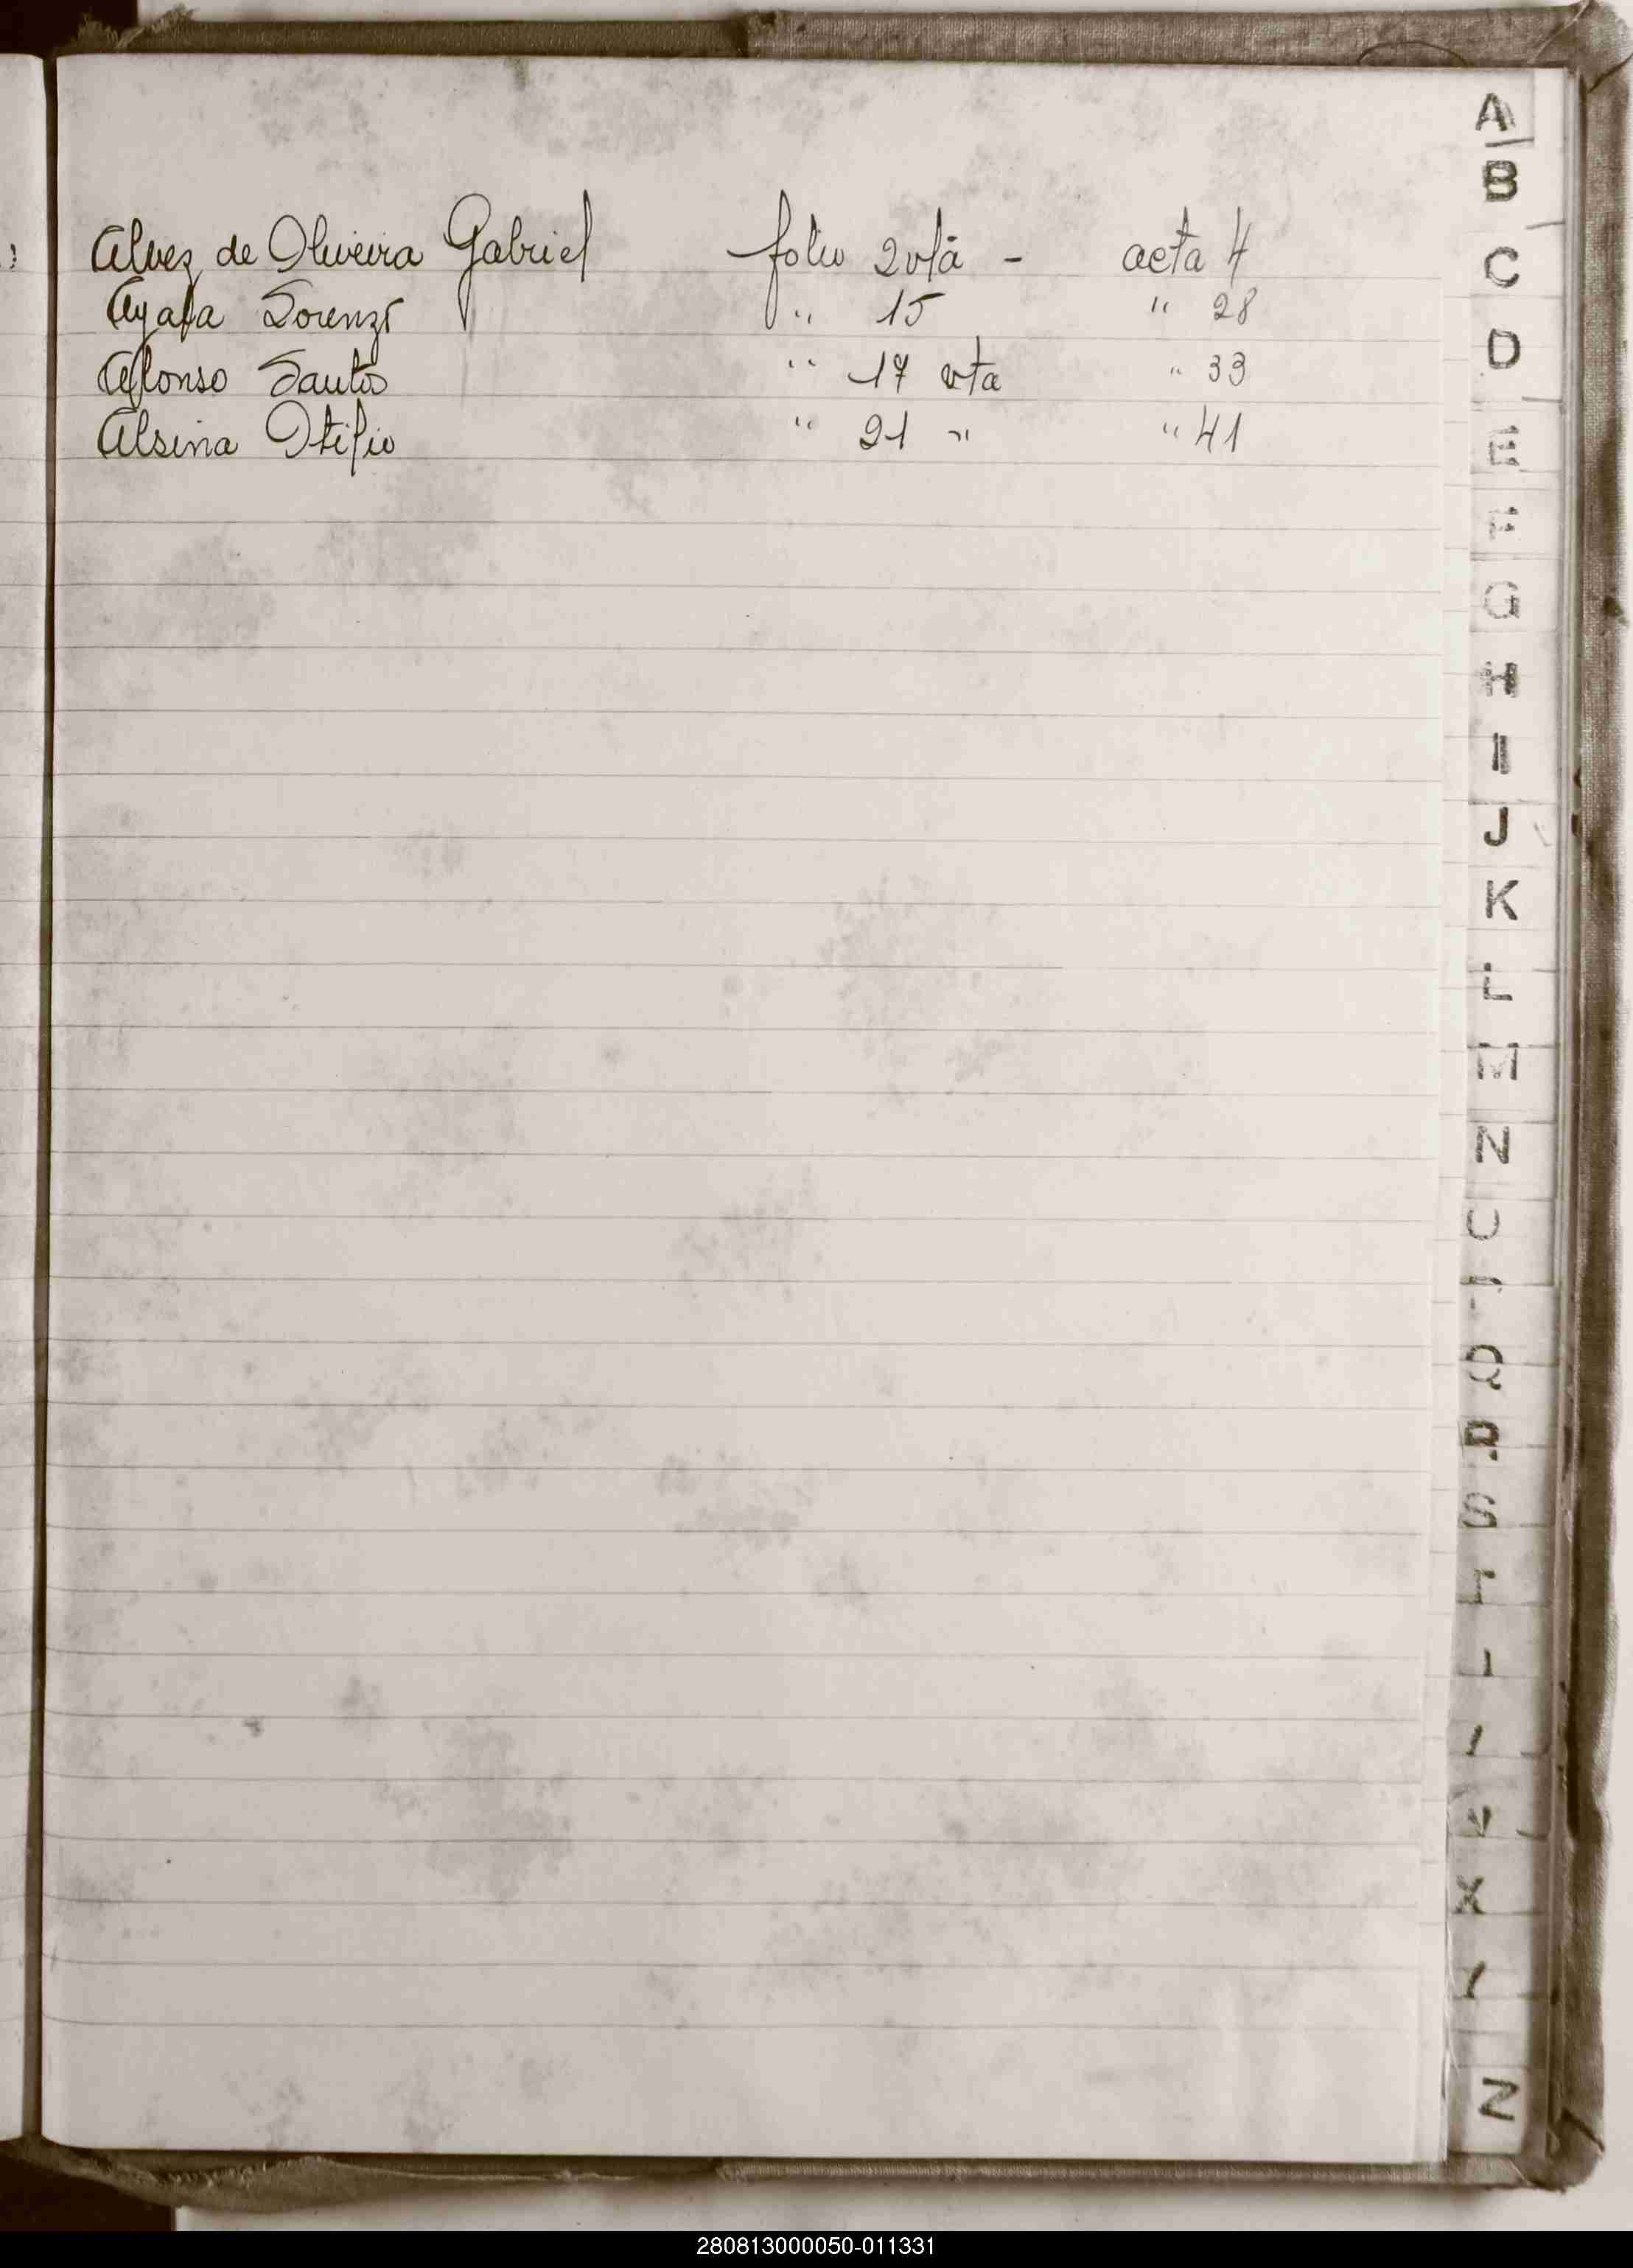 Alvez de Oliveira Gabriel folio 2 vta - acta 4
Ayala Lorenzi " 15 " 28
Afonso Santos " 17 vta " 33
Alsina Otilio " 21 " " 41
A
B
C
D
E
F
G
H
I
J
K
L
M
N
Q
R
S
T
X
Z
280813000050-011331